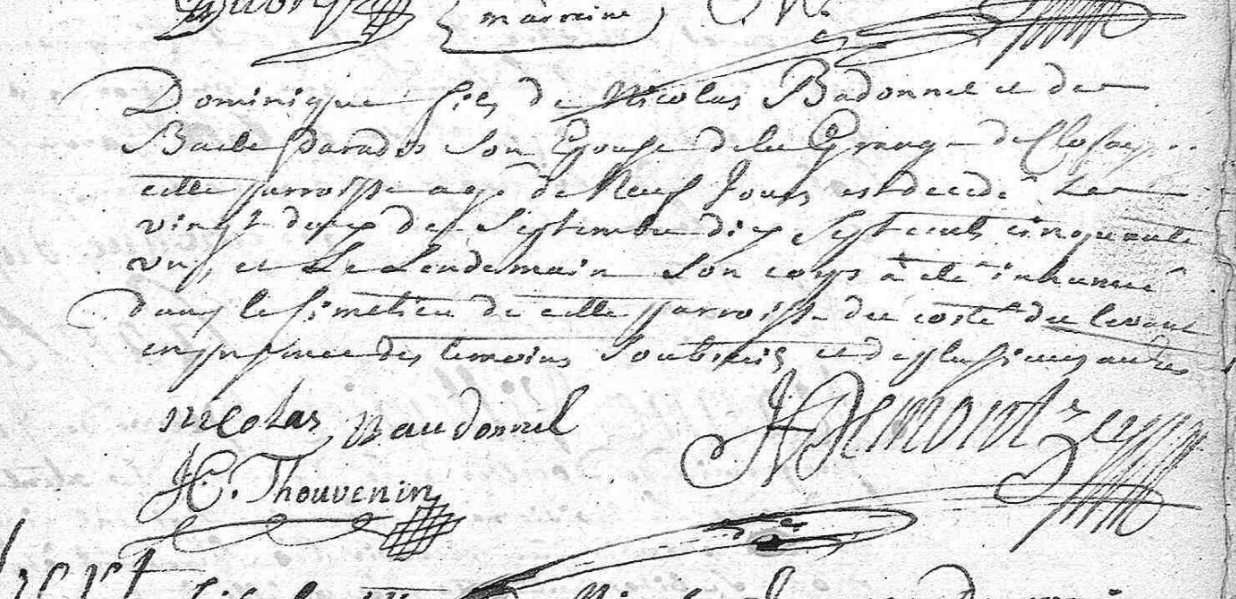 marraine
Dominique fils de Nicolas Badonnel et de
Barbe Paradis son Epouse de la Grange de
cette parroisse agé de Neuf Jours est decedé Le
vingt deux de Septembre dix sept cents cinquante
un, et Le Lendemain son corps à été inhumé
dans le simetiere de cette parroisse du costé du levant
en presence des temoins soubsignés et de plusieurs autres
nicolas Baudonnel
J C. Thouvenin